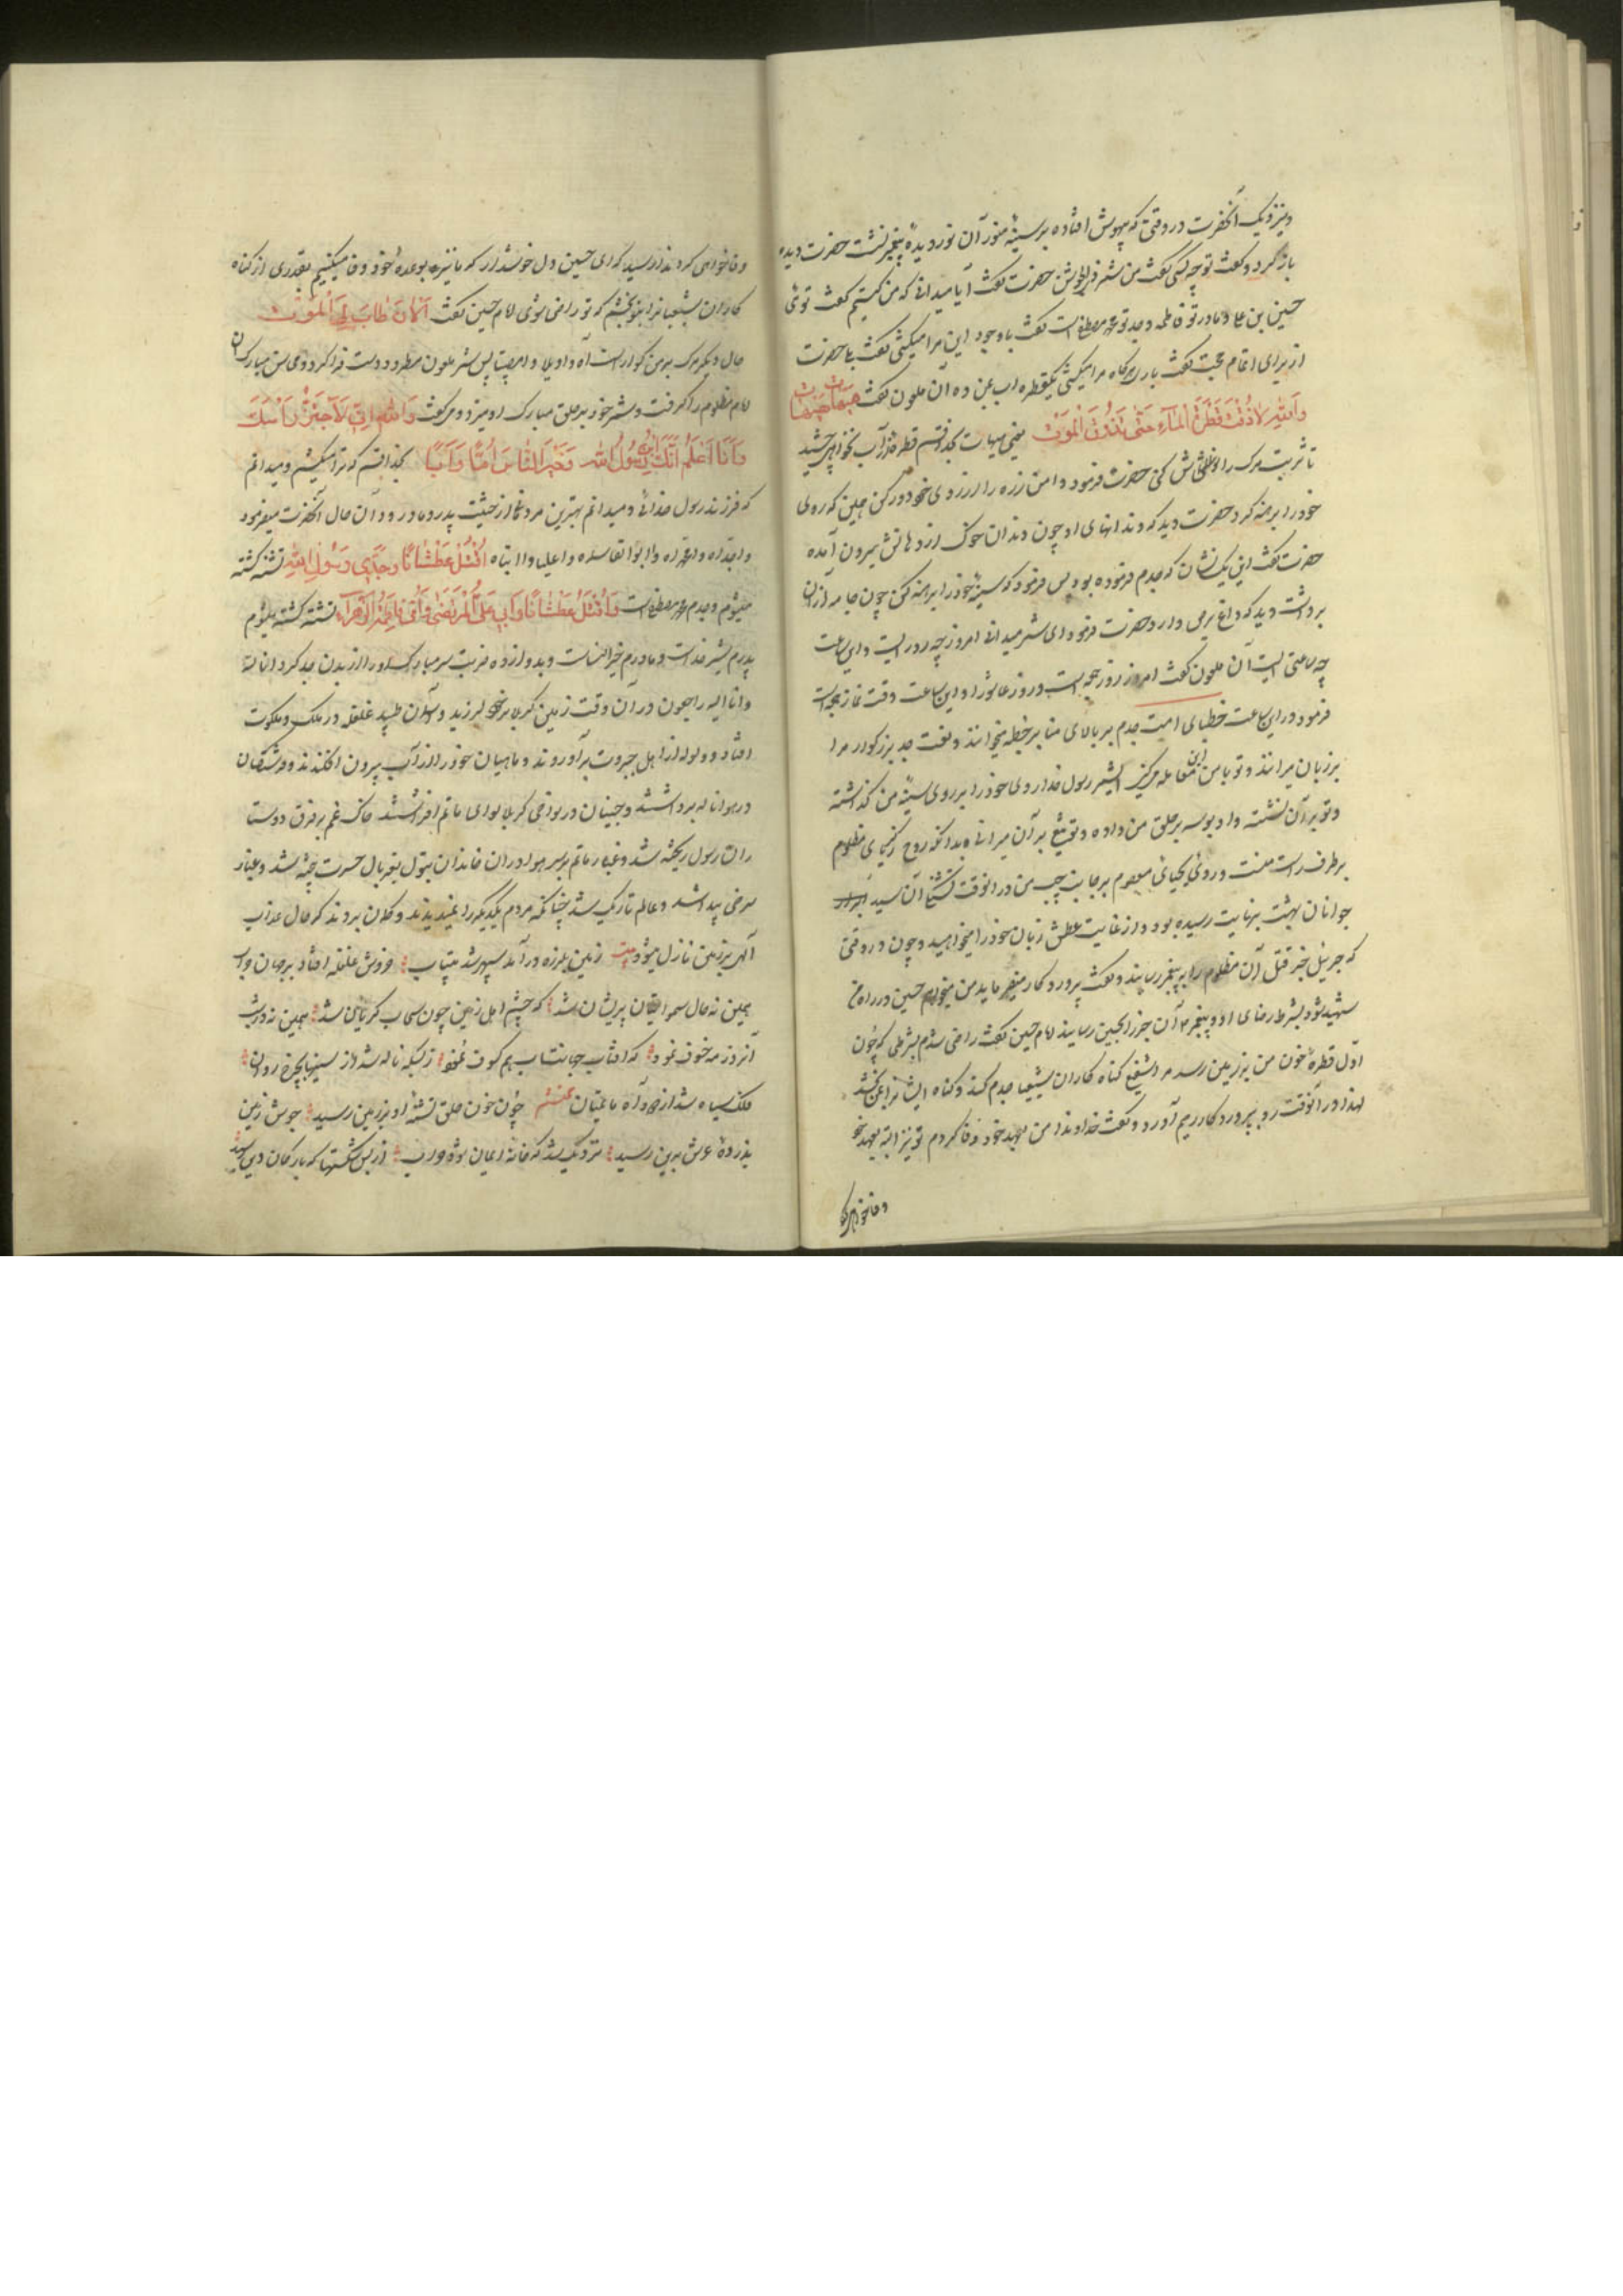 ونیزدیک آنحضرت در وقتی که بیهوش افتاده بر سینهٔ منور آن نور دیدهٔ پیغمبر نشست حضرت دیده
باز کرد و گفت تو چه کسی گفت من شمر ذی الجوشن حضرت گفت آیا میدانی که من کیستم گفت توئی
حسین بن علی و مادر تو فاطمه و جد تو محمد مصطفی است گفت باوجود این مرا میکشی گفت بلی حضرت
از برای اتمام حجت گفت بار هرگاه مرا میکشی یکقطره آب بمن ده آن ملعون گفت هیهات هیهات
والله لا ذقت قطرة الماء حتی تذوق الموت یعنی هیهات بخدا قسم قطرهٔ آب نخواهی چشید
تا شربت مرک را نوش کنی حضرت فرمود دامن زره را از روی خود دور کن چون که روی
خود را برهنه کرد حضرت دید که دندانهای او چون دندان خوک از دهانش بیرون آمده
حضرت گفت این یک نشان که جدم فرموده بود پس فرمود که سینهٔ خود را برهنه کن چون جامه از آن
برداشت دید که داغ برص دارد حضرت فرمود ای شمر میدانی امروز چه روز است و این ساعت
چه ساعتی است آن ملعون گفت امروز روز جمعه است و روز عاشورا و این ساعت وقت نماز جمعه است
فرمود در این ساعت خطبای امت جدم بر بالای منابر خطبه میخوانند و نعت جد بزرکوار مرا
بر زبان میرانند و تو با من این معامله میکنی ای شمر رسول خدا روی خود را بر روی سینهٔ من گذاشته
و تو بر آن نشسته و او بوسه بر حلق من داده و تو تیغ بر آن میرانی و بدانکه روح زکریای مظلوم
بر طرف راست منست و روح یحیای معصوم بر جانب چپ من در آنوقت تشنگی آن سید
جوانان بهشت بنهایت رسیده بود و از غایت عطش زبان خود را میخواهید و چون در وقتی
که جبرئیل خبر قتل آن مظلوم را به پیغمبر رسانید و گفت پروردگار میفرماید من میخواهم حسین در راه من
شهید شود بشرط رضای او و پیغمبر آن خبر را بحسین رسانید امام حسین گفت راضی شدم بشرطی که چون
اول قطرهٔ خون من بر زمین رسد مرا شفیع کناه کاران شیعیان جدم کند و کناه ایشانرا بمن بخشد
لهذا در آنوقت رو بپروردگار رحیم آورد و گفت خداوندا من بعهد خود وفا کردم تو نیز البته بعهد خود
وفا خواهی کرد
وفا خواهی کرد ندا رسید که ای حسین دل خوشدار که ما نیز بوعدهٔ خود وفا میکنیم بقدری از کناه
کاران شیعیانرا بتو بخشم که تو راضی شوی امام حسین گفت الآن طاب لی الموت
حال دیگر مرک بر من کواراست آه واویلا وامصیبتا پس شمر ملعون مطرود دست فرا کرد و محاسن مبارک آن
امام مظلوم را گرفت و خنجر خود بر حلق مبارک او میزد و میگفت والله انی لاجتز رأسک
وانا اعلم انک ابن رسول الله وخیر الناس اما وابا بخدا قسم که ترا میکشم و میدانم
که فرزند رسول خدائی و میدانم بهترین مردمانی از حیثیت پدر و مادر و در آن حال آنحضرت میفرمود
واجداه وامحمداه وا ابوالقاسماه واعلیا وا ابتاه اقتل عطشانا وجدی رسول الله تشنه کشته
میشوم و جدم محمد مصطفی است واقتل عطشانا وابی علی المرتضی وامی فاطمة الزهراء تشنه کشته میشوم
پدرم شیر خداست و مادرم خیر النساست و بدوازده ضربت سر مبارک او را از بدن جدا کرد انا لله
وانا الیه راجعون در آن وقت زمین کربلا بر خود لرزید و آسمان طپید غلغله در ملک و ملکوت
افتاد و ولوله از اهل جبروت برآوردند و ماهیان خود را از آب بیرون افکندند و فرشتکان
در هوا ناله برداشتند و جنیان در نواحی کربلا لوای ماتم افراشتند خاک غم بر فرق دوستا
ران رسول ریخته شد و غبار ماتم بر سر هوادران خاندان بتول بغربال حسرت بیخته شد و غبار
سرخی پیدا شد و عالم تاریک شد چنانکه مردم یکدیکر را نمیدیدند و کمان بردند که حال عذاب
الهی بر زمین نازل میشود بیت زمین بلرزه درآمد سپهر شد بیتاب خروش غلغله افتاد بر جهان خراب
همین نه حال سماواتیان پریشان شد که چشم اهل زمین چون سحاب گریان شد همین نه در شب
آنروز مه خسوف نمود که افتاب جهانتاب هم کسوف نمود ز بسکه ناله شد از سینها بچرخ روان
فلک سیاه شد از دود آه ماتمیان محتشم چون خون حلق تشنهٔ او بر زمین رسید جوش زمین
بذروهٔ عرش برین رسید نزدیک شد که خانهٔ ایمان شود خراب از بس شکستها که بارکان دین رسید